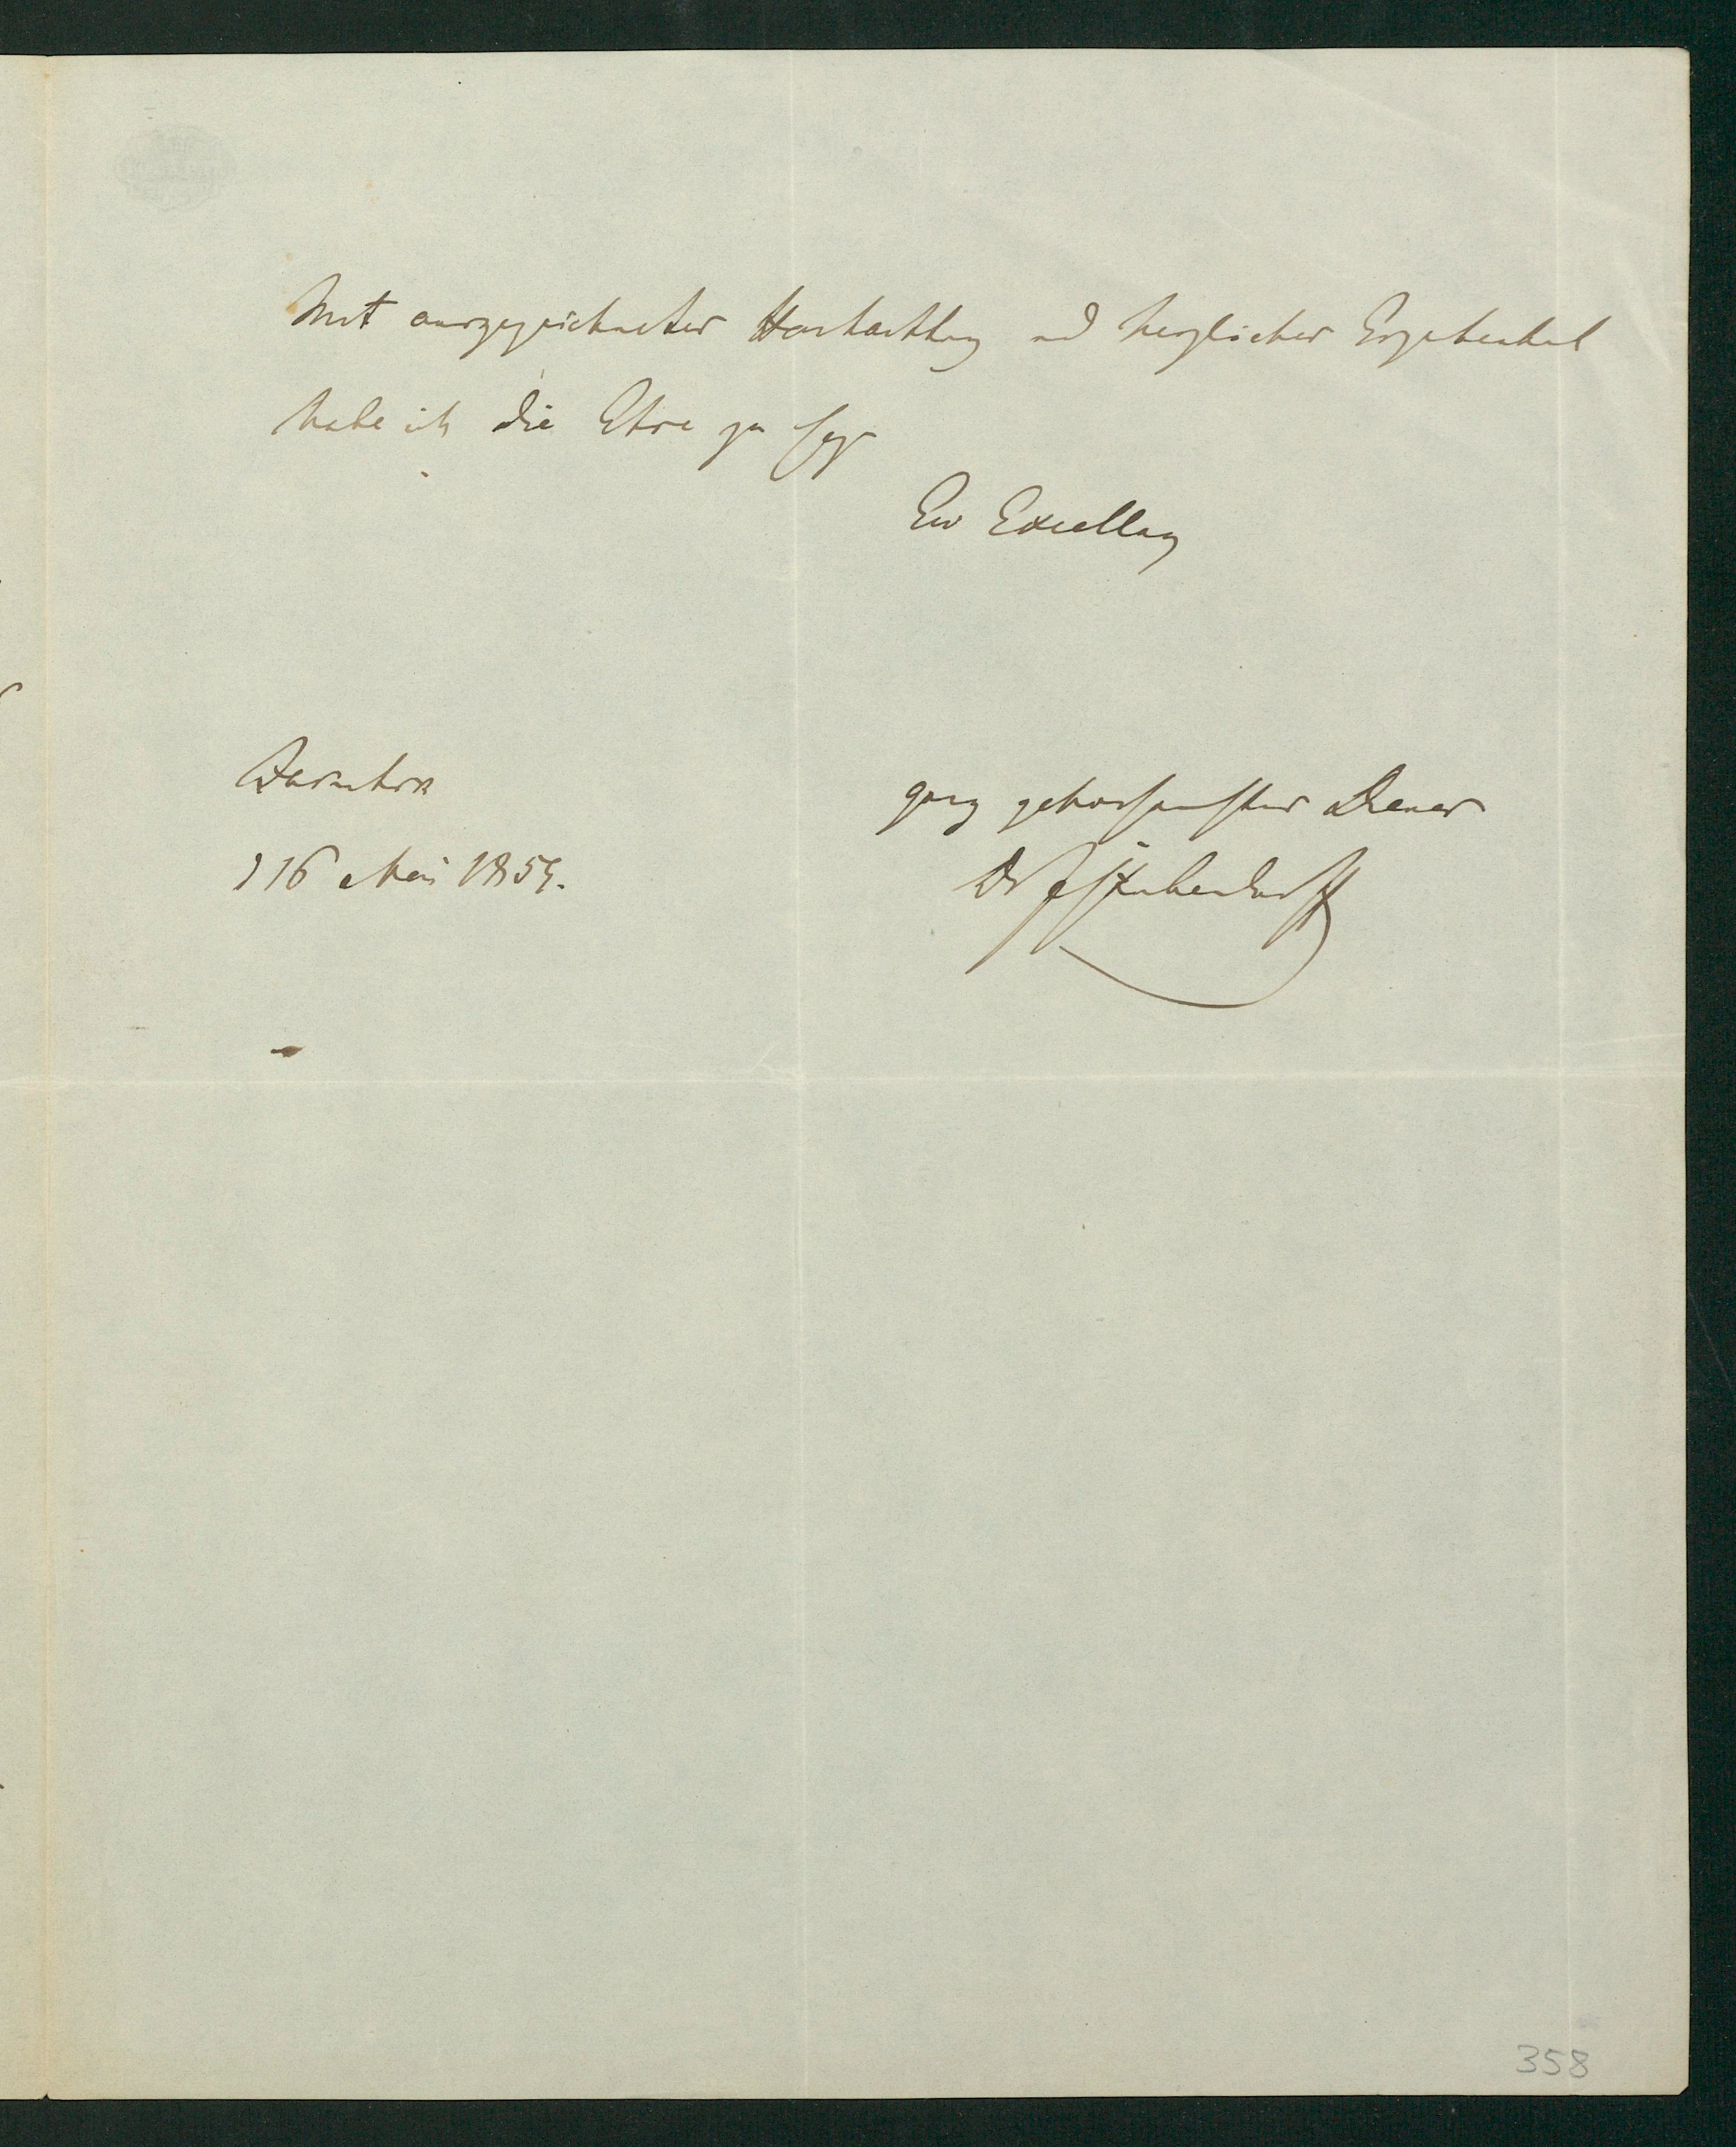 Mit ausgezeichneter Hochachtung und herzlicher Ergebenheit
habe ich die Ehre zu seyn
Ew Excellenz
ganz gehorsamster Diener
Dr Stubendorff
d 16 Mai 1854.
358